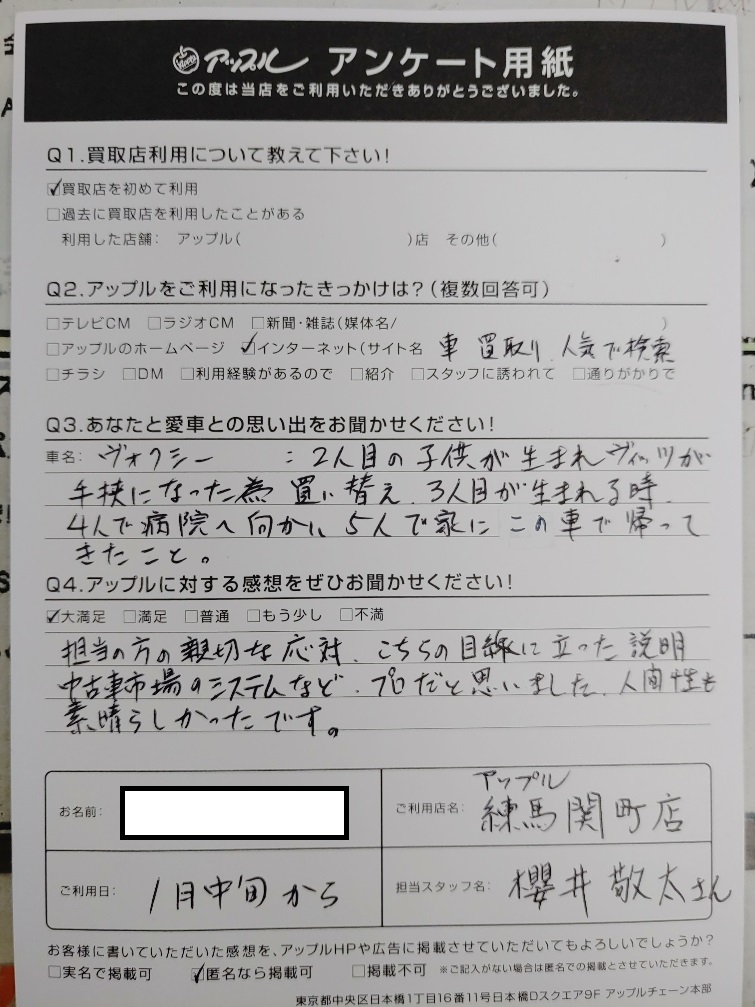 アップル アンケート用紙
この度は当店をご利用いただきありがとうございました。
Q1.買取店利用について教えて下さい!
☑買取店を初めて利用
□過去に買取店を利用したことがある
利用した店舗: アップル( )店 その他( )
Q2.アップルをご利用になったきっかけは?(複数回答可)
□テレビCM □ラジオCM □新聞・雑誌(媒体名/ )
□アップルのホームページ ☑インターネット(サイト名 車 買取り 人気で検索
□チラシ □DM □利用経験があるので □紹介 □スタッフに誘われて □通りがかりで
Q3.あなたと愛車との思い出をお聞かせください!
車名: ヴォクシー :2人目の子供が生まれヴィッツが
手狭になった為 買い替え、3人目が生まれる時、
4人で病院へ向かい、5人で家に この車で帰って
きたこと。
Q4.アップルに対する感想をぜひお聞かせください!
☑大満足 □満足 □普通 □もう少し □不満
担当の方の親切な応対、こちらの目線に立った説明
中古車市場のシステムなど、プロだと思いました、人間性も
素晴らしかったです。
お名前:
ご利用店名: アップル
練馬関町店
ご利用日: 1月中旬から
担当スタッフ名: 櫻井敬太さん
お客様に書いていただいた感想を、アップルHPや広告に掲載させていただいてもよろしいでしょうか?
□実名で掲載可 ☑匿名なら掲載可 □掲載不可 ※ご記入がない場合は匿名での掲載とさせていただきます。
東京都中央区日本橋1丁目16番11号日本橋Dスクエア9F アップルチェーン本部